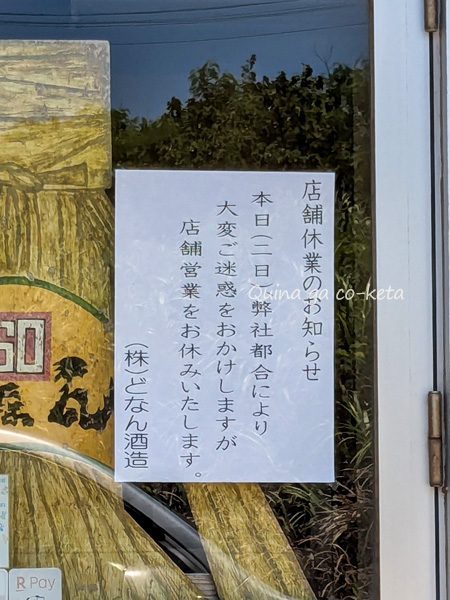 店舗休業のお知らせ
本日(二日)弊社都合により
大変ご迷惑をおかけしますが
店舗営業をお休みいたします。
(株)どなん酒造
Quina ga co-keta
60
R Pay